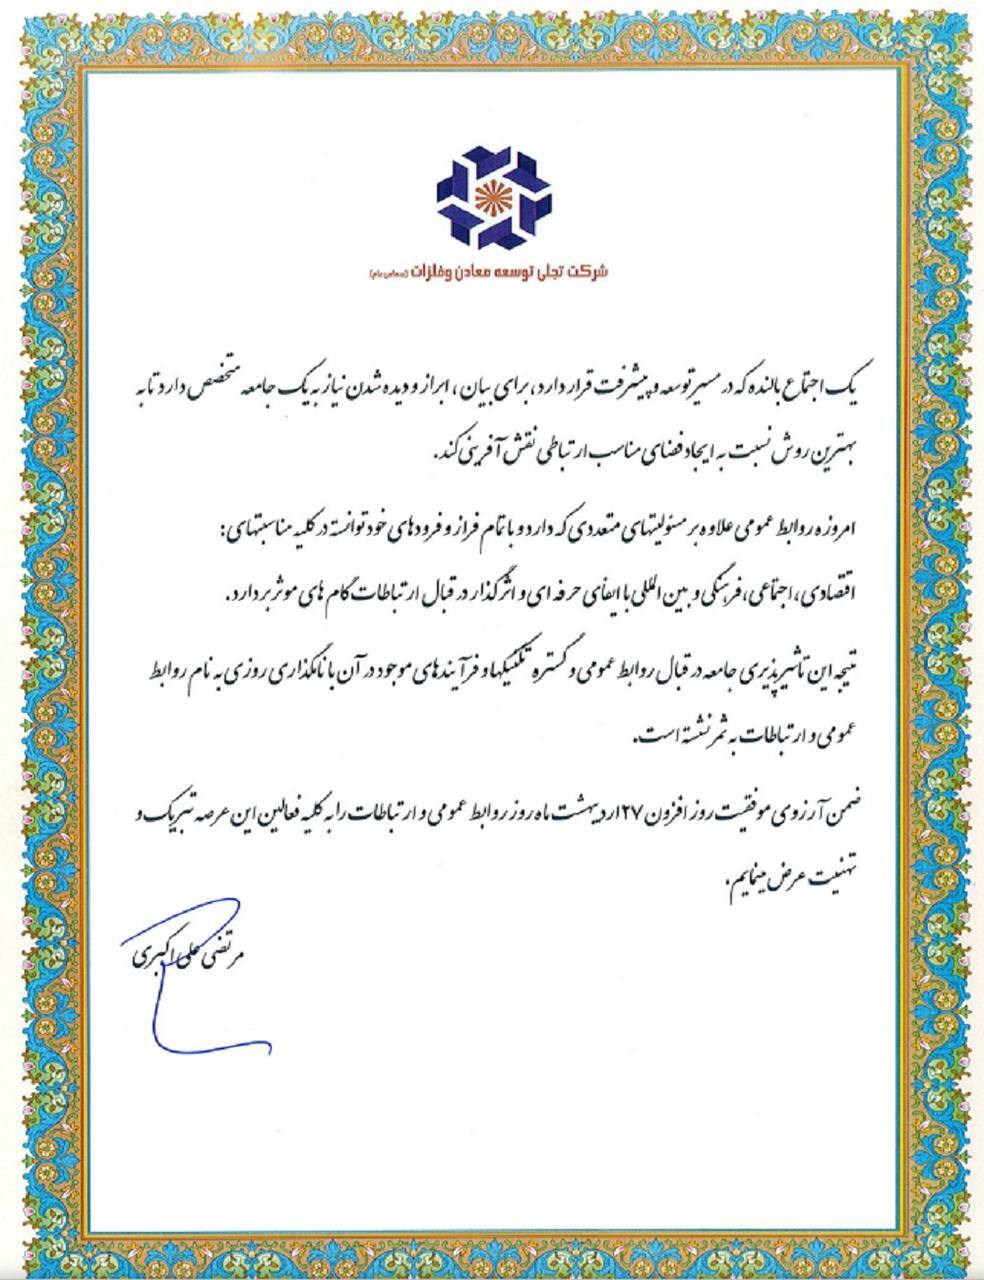 شرکت تجلی توسعه معادن وفلزات (سهامی عام)
یک اجتماع بالنده که در مسیر توسعه و پیشرفت قرار دارد، برای بیان ، ابراز و دیده شدن نیاز به یک جامعه متخصص دارد تا به
بهترین روش نسبت به ایجاد فضای مناسب ارتباطی نقش آفرینی کند.
امروزه روابط عمومی علاوه بر مسئولیتهای متعددی که دارد و با تمام فراز و فرودهای خود توانسته در کلیه مناسبتهای :
اقتصادی، اجتماعی، فرهنگی و بین المللی با ایفای حرفه ای و اثرگذار در قبال ارتباطات گام های موثر بردارد.
نتیجه این تاثیرپذیری جامعه در قبال روابط عمومی و گستره تکنیکها و فرآیندهای موجود در آن با نامگذاری روزی به نام روابط
عمومی و ارتباطات به ثمر نشسته است.
ضمن آرزوی موفقیت روز افزون ۲۷ اردیبهشت ماه روز روابط عمومی و ارتباطات را به کلیه فعالین این عرصه تبریک و
تهنیت عرض مینمایم.
مرتضی علی اکبری